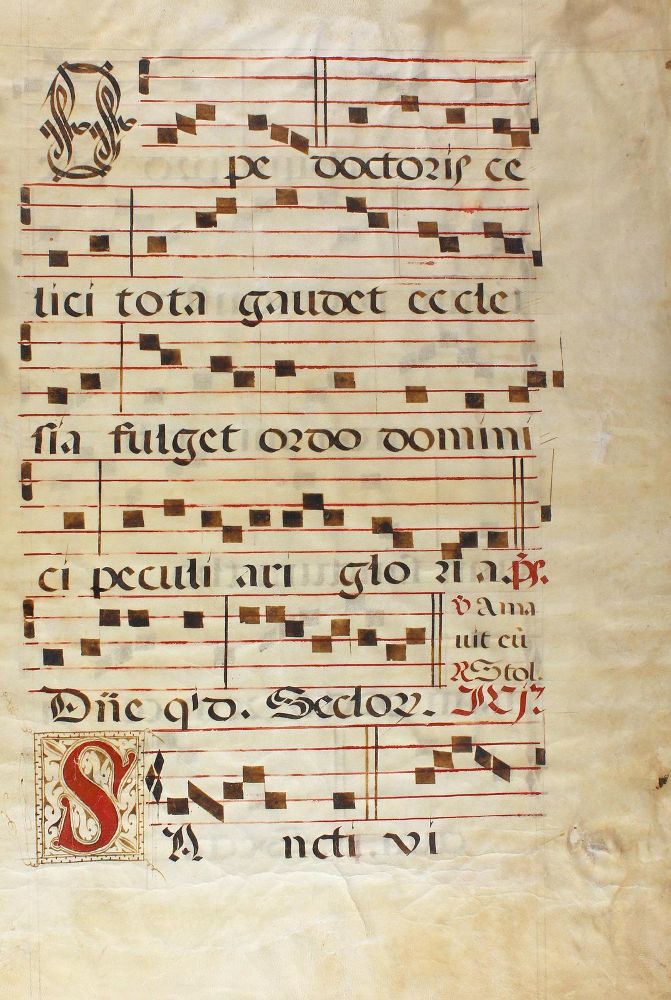 Ope doctoris ce
lici tota gaudet eccle
sia fulget ordo domini
ci peculi ari glo ri a. ps.
℣ Ama
uit eũ
℟ Stol.
Dñe q'd. Secloꝝ.
SA ncti vi